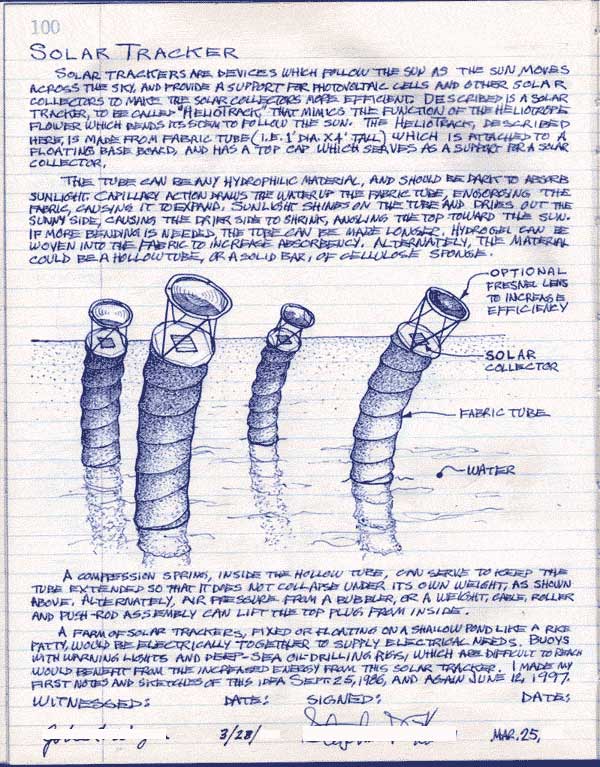 100
SOLAR TRACKER
SOLAR TRACKERS ARE DEVICES WHICH FOLLOW THE SUN AS THE SUN MOVES
ACROSS THE SKY, AND PROVIDE A SUPPORT FOR PHOTOVOLTAIC CELLS AND OTHER SOLAR
COLLECTORS TO MAKE THE SOLAR COLLECTORS MORE EFFICIENT. DESCRIBED IS A SOLAR
TRACKER, TO BE CALLED "HELIOTRACK," THAT MIMICS THE FUNCTION OF THE HELIOTROPE
FLOWER WHICH BENDS ITS STEM TO FOLLOW THE SUN. THE HELIOTRACK, DESCRIBED
HERE, IS MADE FROM FABRIC TUBE (I.E. 1' DIA. X 4' TALL) WHICH IS ATTACHED TO A
FLOATING BASE BOARD, AND HAS A TOP CAP WHICH SERVES AS A SUPPORT FOR A SOLAR
COLLECTOR.
THE TUBE CAN BE ANY HYDROPHILIC MATERIAL, AND SHOULD BE DARK TO ABSORB
SUNLIGHT. CAPILLARY ACTION DRAWS THE WATER UP THE FABRIC TUBE, ENGORGING THE
FABRIC, CAUSING IT TO EXPAND. SUNLIGHT SHINES ON THE TUBE AND DRIES OUT THE
SUNNY SIDE, CAUSING THE DRIER SIDE TO SHRINK, ANGLING THE TOP TOWARD THE SUN.
IF MORE BENDING IS NEEDED, THE TUBE CAN BE MADE LONGER. HYDROGEL CAN BE
WOVEN INTO THE FABRIC TO INCREASE ABSORBENCY. ALTERNATELY, THE MATERIAL
COULD BE A HOLLOW TUBE, OR A SOLID BAR, OF CELLULOSE SPONGE.
OPTIONAL
FRESNEL LENS
TO INCREASE
EFFICIENCY
SOLAR
COLLECTOR
FABRIC TUBE
WATER
A COMPRESSION SPRING, INSIDE THE HOLLOW TUBE, CAN SERVE TO KEEP THE
TUBE EXTENDED SO THAT IT DOES NOT COLLAPSE UNDER ITS OWN WEIGHT, AS SHOWN
ABOVE. ALTERNATELY, AIR PRESSURE FROM A BUBBLER, OR A WEIGHT, CABLE, ROLLER
AND PUSH-ROD ASSEMBLY CAN LIFT THE TOP PLUG FROM INSIDE.
A FARM OF SOLAR TRACKERS, FIXED OR FLOATING ON A SHALLOW POND LIKE A RICE
PATTY, WOULD BE ELECTRICALLY TOGETHER TO SUPPLY ELECTRICAL NEEDS. BUOYS
WITH WARNING LIGHTS AND DEEP-SEA OIL DRILLING RIGS, WHICH ARE DIFFICULT TO REACH
WOULD BENEFIT FROM THE INCREASED ENERGY FROM THIS SOLAR TRACKER. I MADE MY
FIRST NOTES AND SKETCHES OF THIS IDEA SEPT 25, 1986, AND AGAIN JUNE 12, 1997.
WITNESSED: DATE: SIGNED: DATE:
3/28/ MAR. 25,